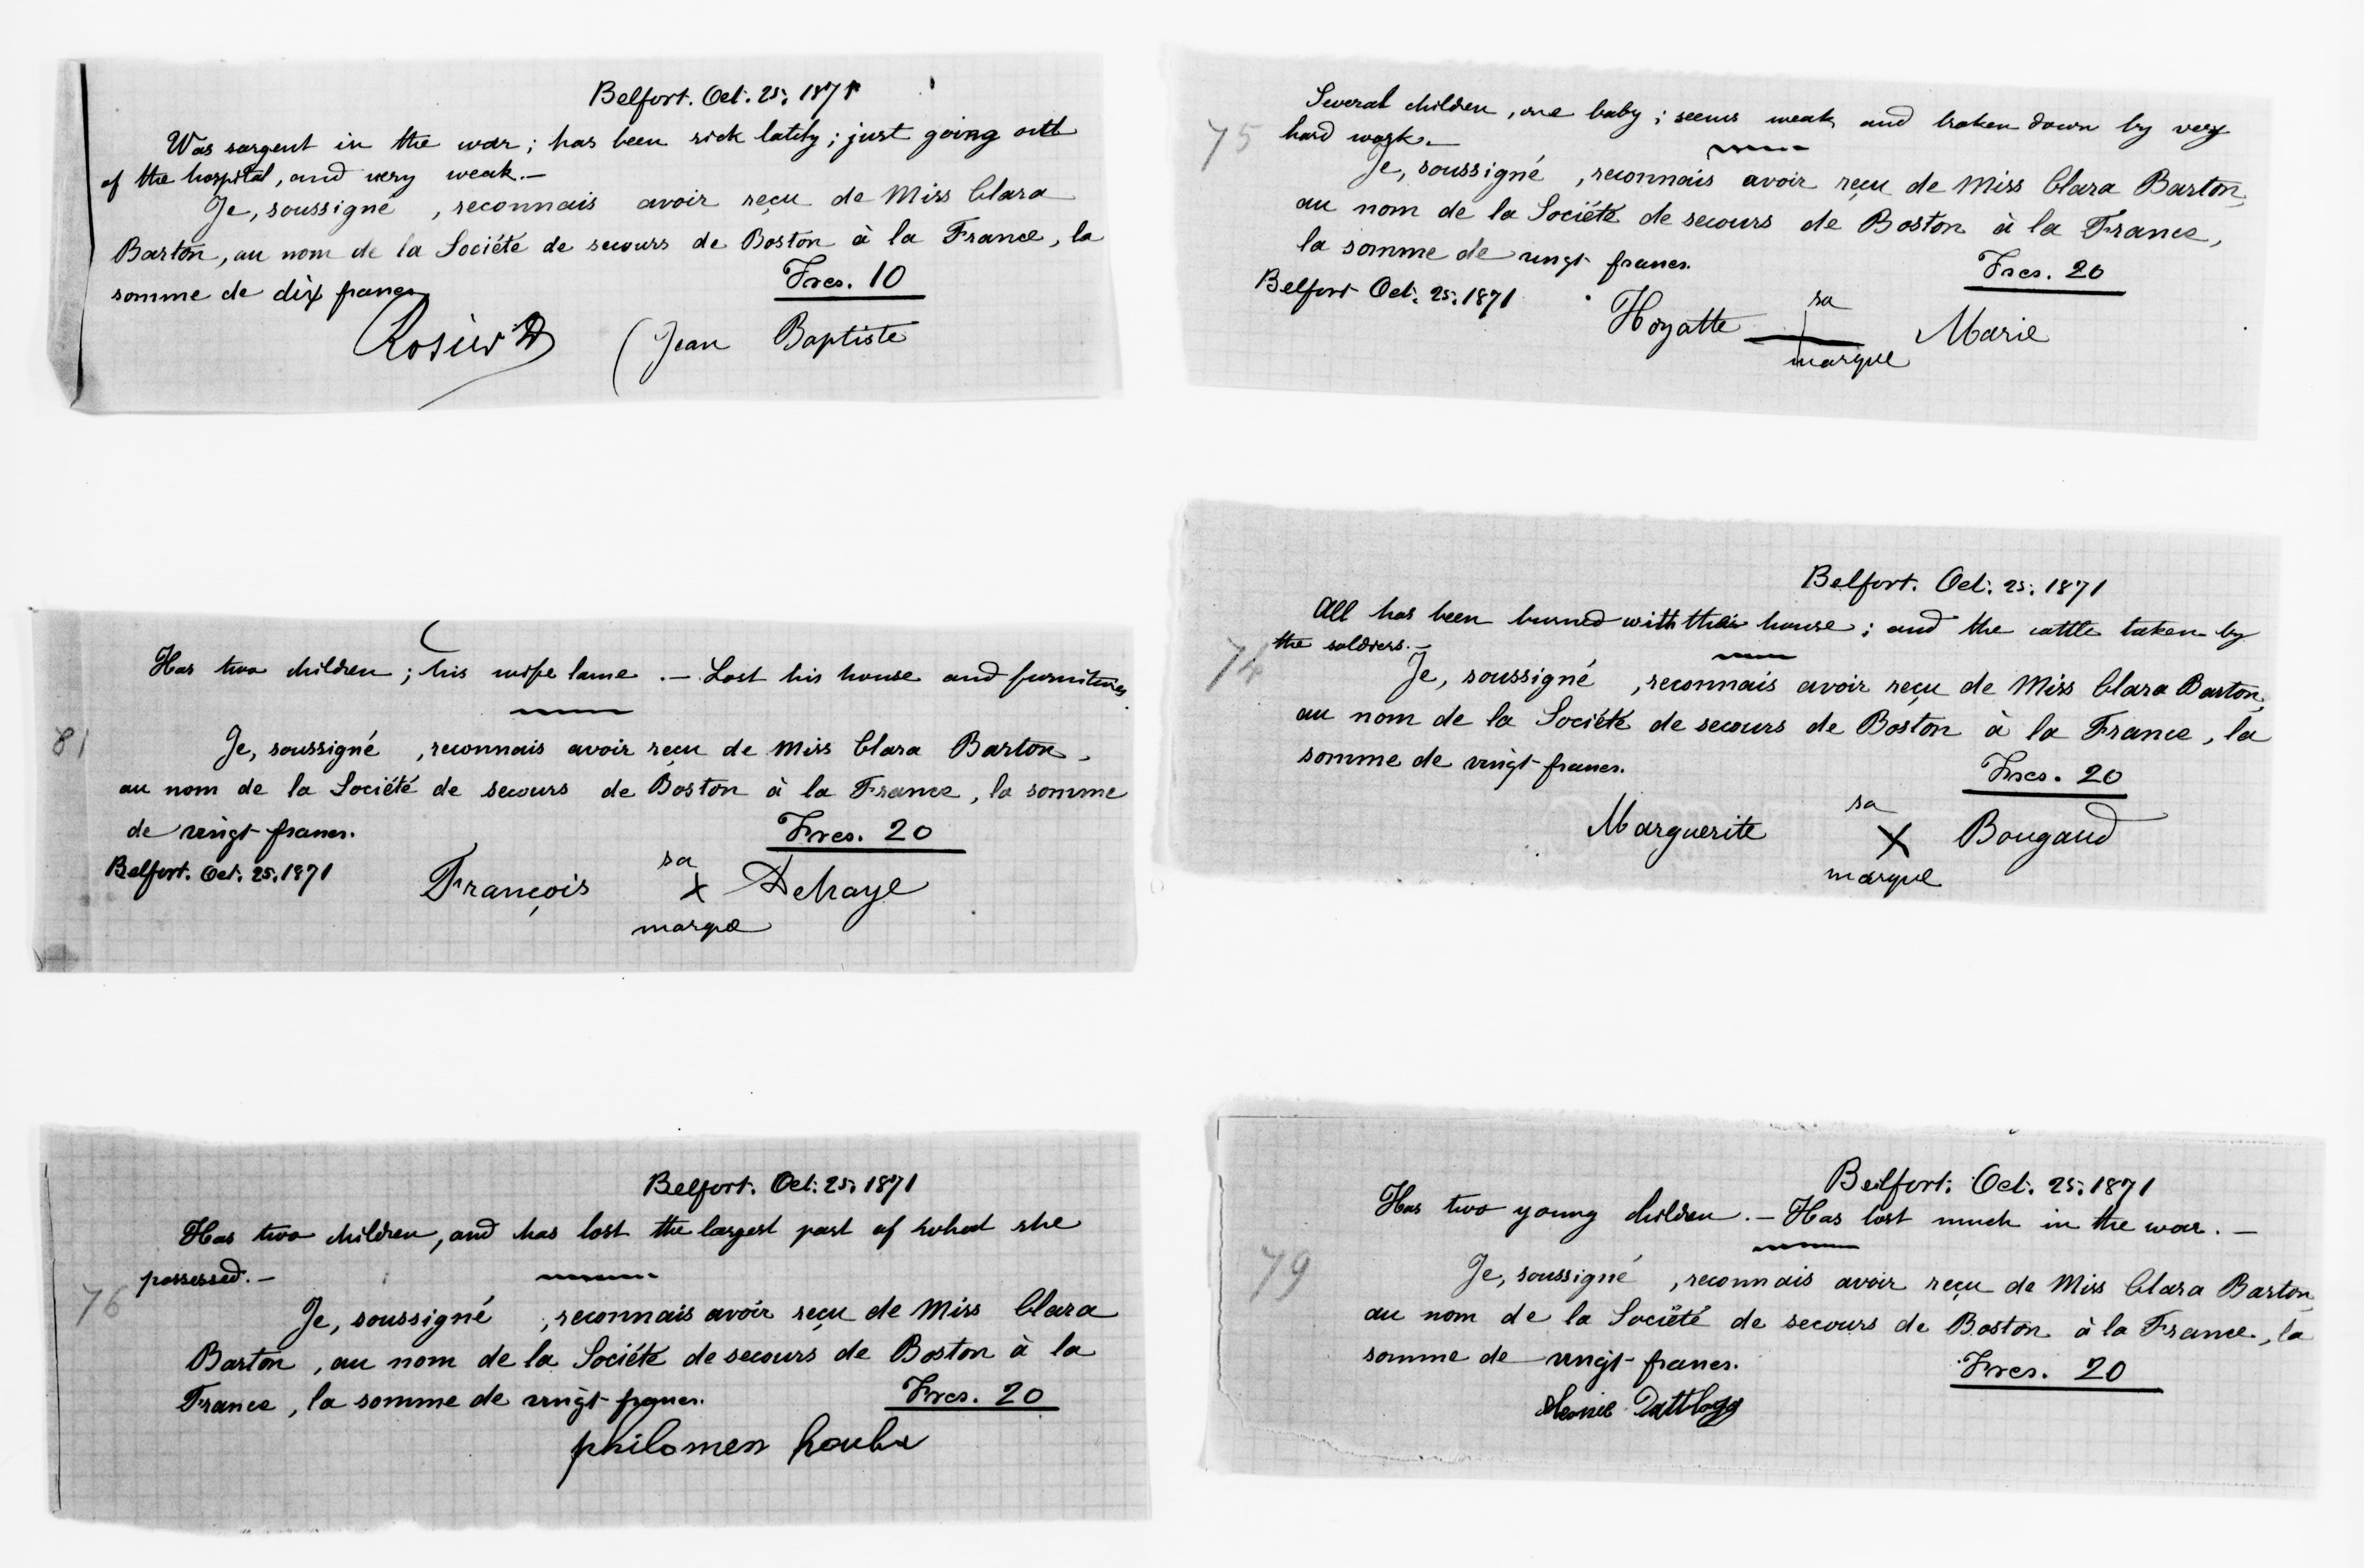 Belfort. Oct. 25, 1871
Was sargent in the war; has been sick lately; just going out
of the hospital, and very weak.—
Je, soussigné , reconnais avoir reçu de Miss Clara
Barton, au nom de la Société de secours de Boston à la France, la
somme de dix francs
Frcs. 10
(Jean Baptiste
Has two children; his wife lame. — Lost his house and furnitures.
81
Je, soussigné , reconnais avoir reçu de Miss Clara Barton,
au nom de la Société de secours de Boston à la France, la somme
de vingt francs.
Frcs. 20
Belfort. Oct. 25, 1871
sa
François x Dehaye
marque
Belfort. Oct. 25, 1871
Has two children, and has lost the largest part of what she
possessed.—
76
Je, soussigné , reconnais avoir reçu de Miss Clara
Barton, au nom de la Société de secours de Boston à la
France, la somme de vingt francs.
Frcs. 20
philomen
Several children, one baby; seems weak and broken down by very
75
hard work.—
Je, soussigné , reconnais avoir reçu de Miss Clara Barton,
au nom de la Société de secours de Boston à la France,
la somme de vingt francs.
Frcs. 20
Belfort Oct. 25, 1871
sa
Hoyatte Marie
marque
Belfort. Oct. 25, 1871
All has been burned with their house; and the cattle taken by
the soldiers.—
74
Je, soussigné , reconnais avoir reçu de Miss Clara Barton,
au nom de la Société de secours de Boston à la France, la
somme de vingt francs.
Frcs. 20
sa
Marguerite X Bougaud
marque
Belfort. Oct. 25, 1871
Has two young children. — Has lost much in the war. —
79
Je, soussigné , reconnais avoir reçu de Miss Clara Barton,
au nom de la Société de secours de Boston à la France, la
somme de vingt francs.
Frcs. 20